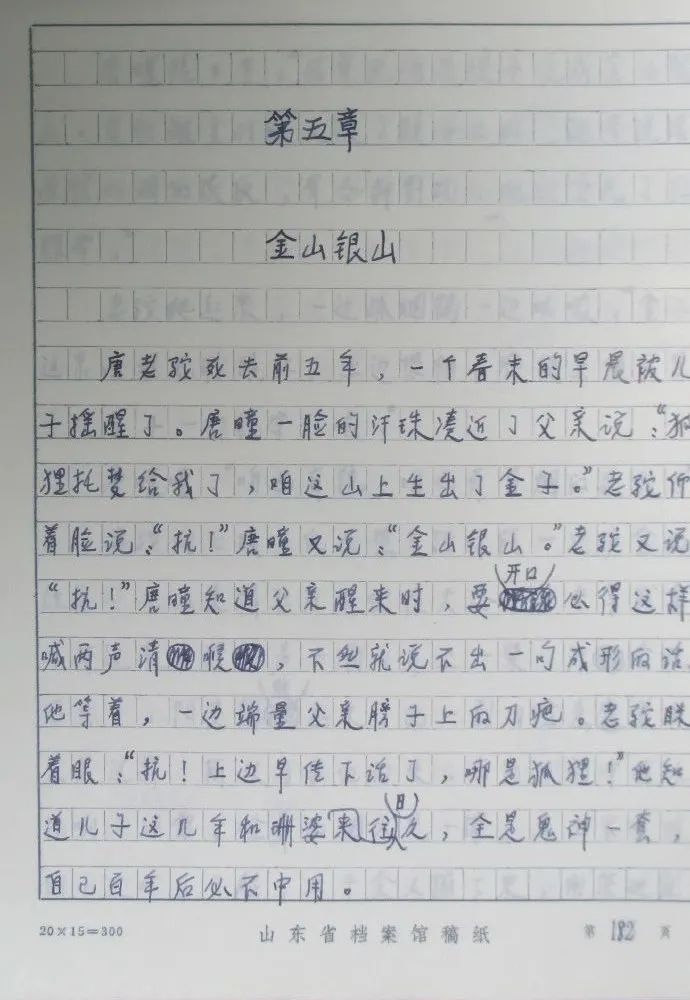 第五章
金山银山
唐老驼死去前五年，一个春末的早晨被儿
子摇醒了。唐童一脸的汗珠凑近了父亲说：“狐
狸托梦给我了，咱这山上生出了金子。”老驼仰
着脸说：“抗！”唐童又说：“金山银山。”老驼又说
“抗！”唐童知道父亲醒来时，要开口必得这样
喊两声清喉，不然就说不出一句成形的话。
他等着，一边端量父亲膀子上的刀疤。老驼眯
着眼：“抗！上边早传下话了，哪是狐狸！”他知
道儿子这几年和珊婆来往日久，全是鬼神一套，
自己百年后必不中用。
20×15=300 山东省档案馆稿纸 第 182 页